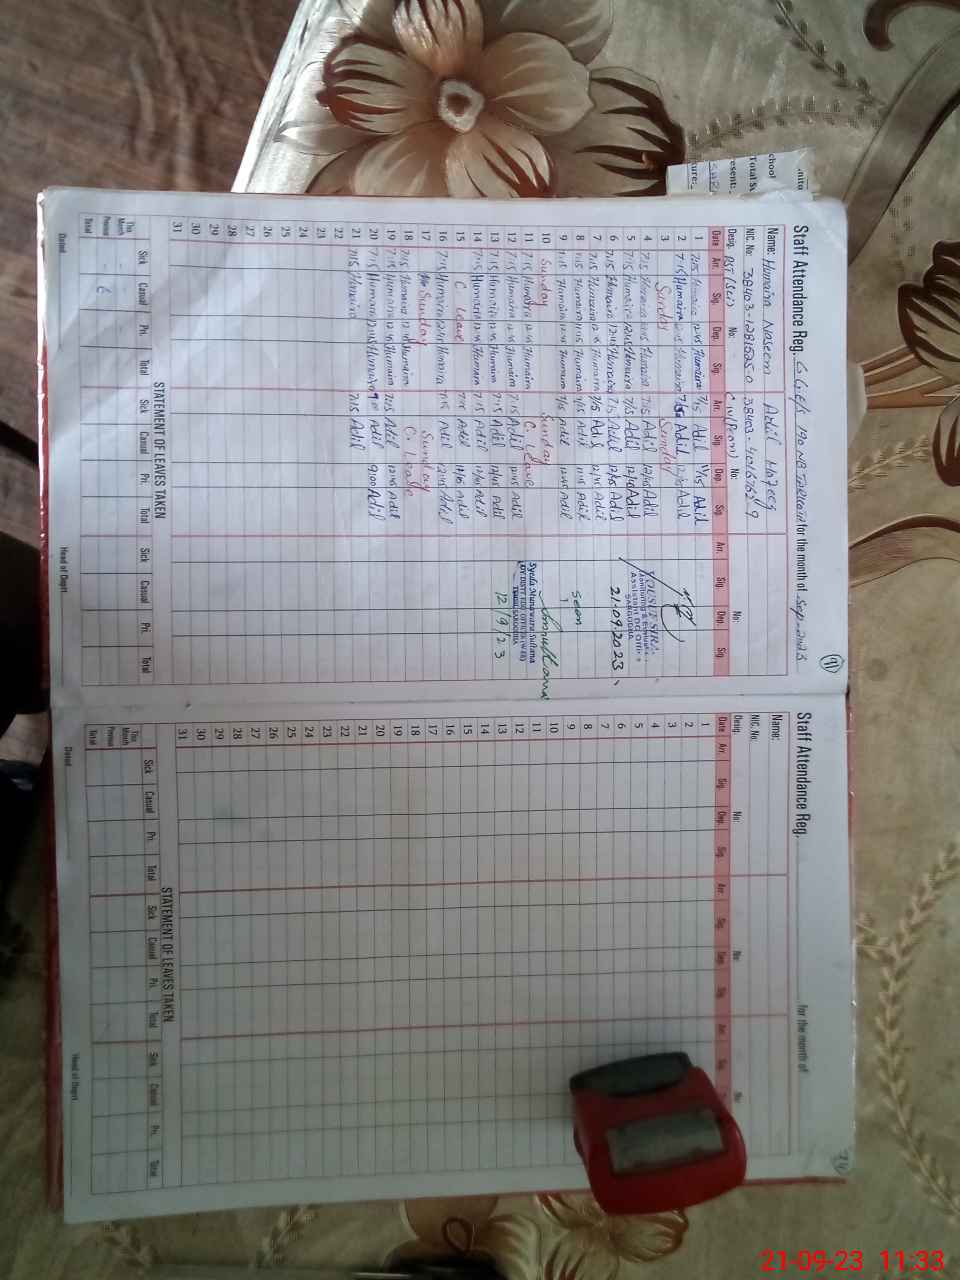 Staff Attendance Reg. G.G.E/S 190 NB TARKHAN for the month of Sep-2023
Name: Humaira Naseem Adil Hafeez
NIC. No: 38403-1281525-0 38403-4016763-9
Desig. PST (Sci) No: C-iv (Peon) No: No:
Date Arr. Sig. Dep. Sig. Arr. Sig. Dep. Sig. Arr. Sig. Dep. Sig.
1 7:15 Humaira 12:45 Humaira 7/15 Adil 11/15 Adil
2 7:15 Humaira 12:45 Humaira Adil 12/15 Adil
3 Sunday Sunday
4 7:15 Humaira Humaira 7:15 Adil 12/45 Adil
5 7:15 Humaira 12:45 Humaira 7/15 Adil 12/45 Adil
6 7:15 Humaira 12:45 Humaira 7/15 Adil 12/45 Adil
7 7:15 Humaira Humaira 7/15 Adil 12/45 Adil
8 7:15 Humaira 11:15 Humaira 7/15 Adil 11:15 Adil
9 7:15 Humaira 12:45 Humaira 7/15 Adil 12:45 Adil
10 Sunday Sunday
11 7:15 Humaira 12:45 Humaira C. Leave
12 7:15 Humaira 12:45 Humaira 7:15 Adil 12:45 Adil
13 7:15 Humaira 12:45 Humaira 7:15 Adil 12/45 Adil
14 7:15 Humaira 12:45 Humaira 7:15 Adil 12/45 Adil
15 C Leave 7:15 Adil Adil
16 7:15 Humaira 12:45 Humaira 7:15 Adil 12:45 Adil
17 Sunday Sunday
18 7:15 Humaira 12:45 Humaira C. Leave
19 7:15 Humaira 12:45 Humaira 7:15 Adil 12:45 Adil
20 7:15 Humaira 12:45 Humaira Adil 9/00 Adil
21 7:15 Humaira 7:15 Adil
22
23
24
25
26
27
28
29
30
31
Monitoring & Evaluation
Assistant DC Office
SARGODHA
21-09-2023
Seen
Syeda Munawara Sultana
12/9/23
STATEMENT OF LEAVES TAKEN
Sick Casual Pri. Total Sick Casual Pri. Total Sick Casual Pri. Total
This Month
Previous 6
Total
Dated Head of Deptt.
Staff Attendance Reg. for the month of
Name:
NIC. No:
Desig. No: No: No:
Date Arr. Sig. Dep. Sig. Arr. Sig. Dep. Sig. Arr. Sig.
1
2
3
4
5
6
7
8
9
10
11
12
13
14
15
16
17
18
19
20
21
22
23
24
25
26
27
28
29
30
31
STATEMENT OF LEAVES TAKEN
Sick Casual Pri. Total Sick Casual Pri. Total Sick Casual Pri. Total
This Month
Previous
Total
Dated Head of Deptt.
21-09-23 11:33